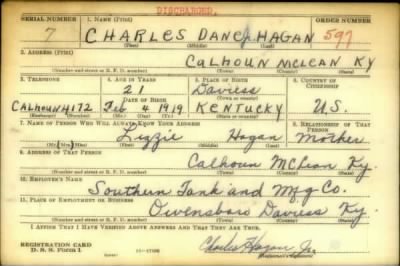 DISCHARGED.
SERIAL NUMBER 1. NAME (Print) ORDER NUMBER
7 CHARLES DANE HAGAN 597
(First) (Middle) (Last)
2. ADDRESS (Print)
CALHOUN MCLEAN KY
(Number and street or R. F. D. number) (Town) (County) (State)
3. TELEPHONE 4. AGE IN YEARS 5. PLACE OF BIRTH 6. COUNTRY OF CITIZENSHIP
21 Daviess
DATE OF BIRTH (Town or county)
CALHOUN 4172 Feb 4 1919 KENTUCKY U.S.
(Exchange) (Number) (Mo.) (Day) (Yr.) (State or country)
7. NAME OF PERSON WHO WILL ALWAYS KNOW YOUR ADDRESS 8. RELATIONSHIP OF THAT PERSON
Lizzie Hagan Mother
(Mr., Mrs., Miss) (First) (Middle) (Last)
9. ADDRESS OF THAT PERSON
Calhoun McLean Ky.
(Number and street or R. F. D. number) (Town) (County) (State)
10. EMPLOYER'S NAME
Southern Tank and Mfg Co.
11. PLACE OF EMPLOYMENT OR BUSINESS
Owensboro Daviess Ky.
(Number and street or R. F. D. number) (Town) (County) (State)
I AFFIRM THAT I HAVE VERIFIED ABOVE ANSWERS AND THAT THEY ARE TRUE.
REGISTRATION CARD
D. S. S. Form 1
Charles Hagan Jr.
(Registrant's signature)